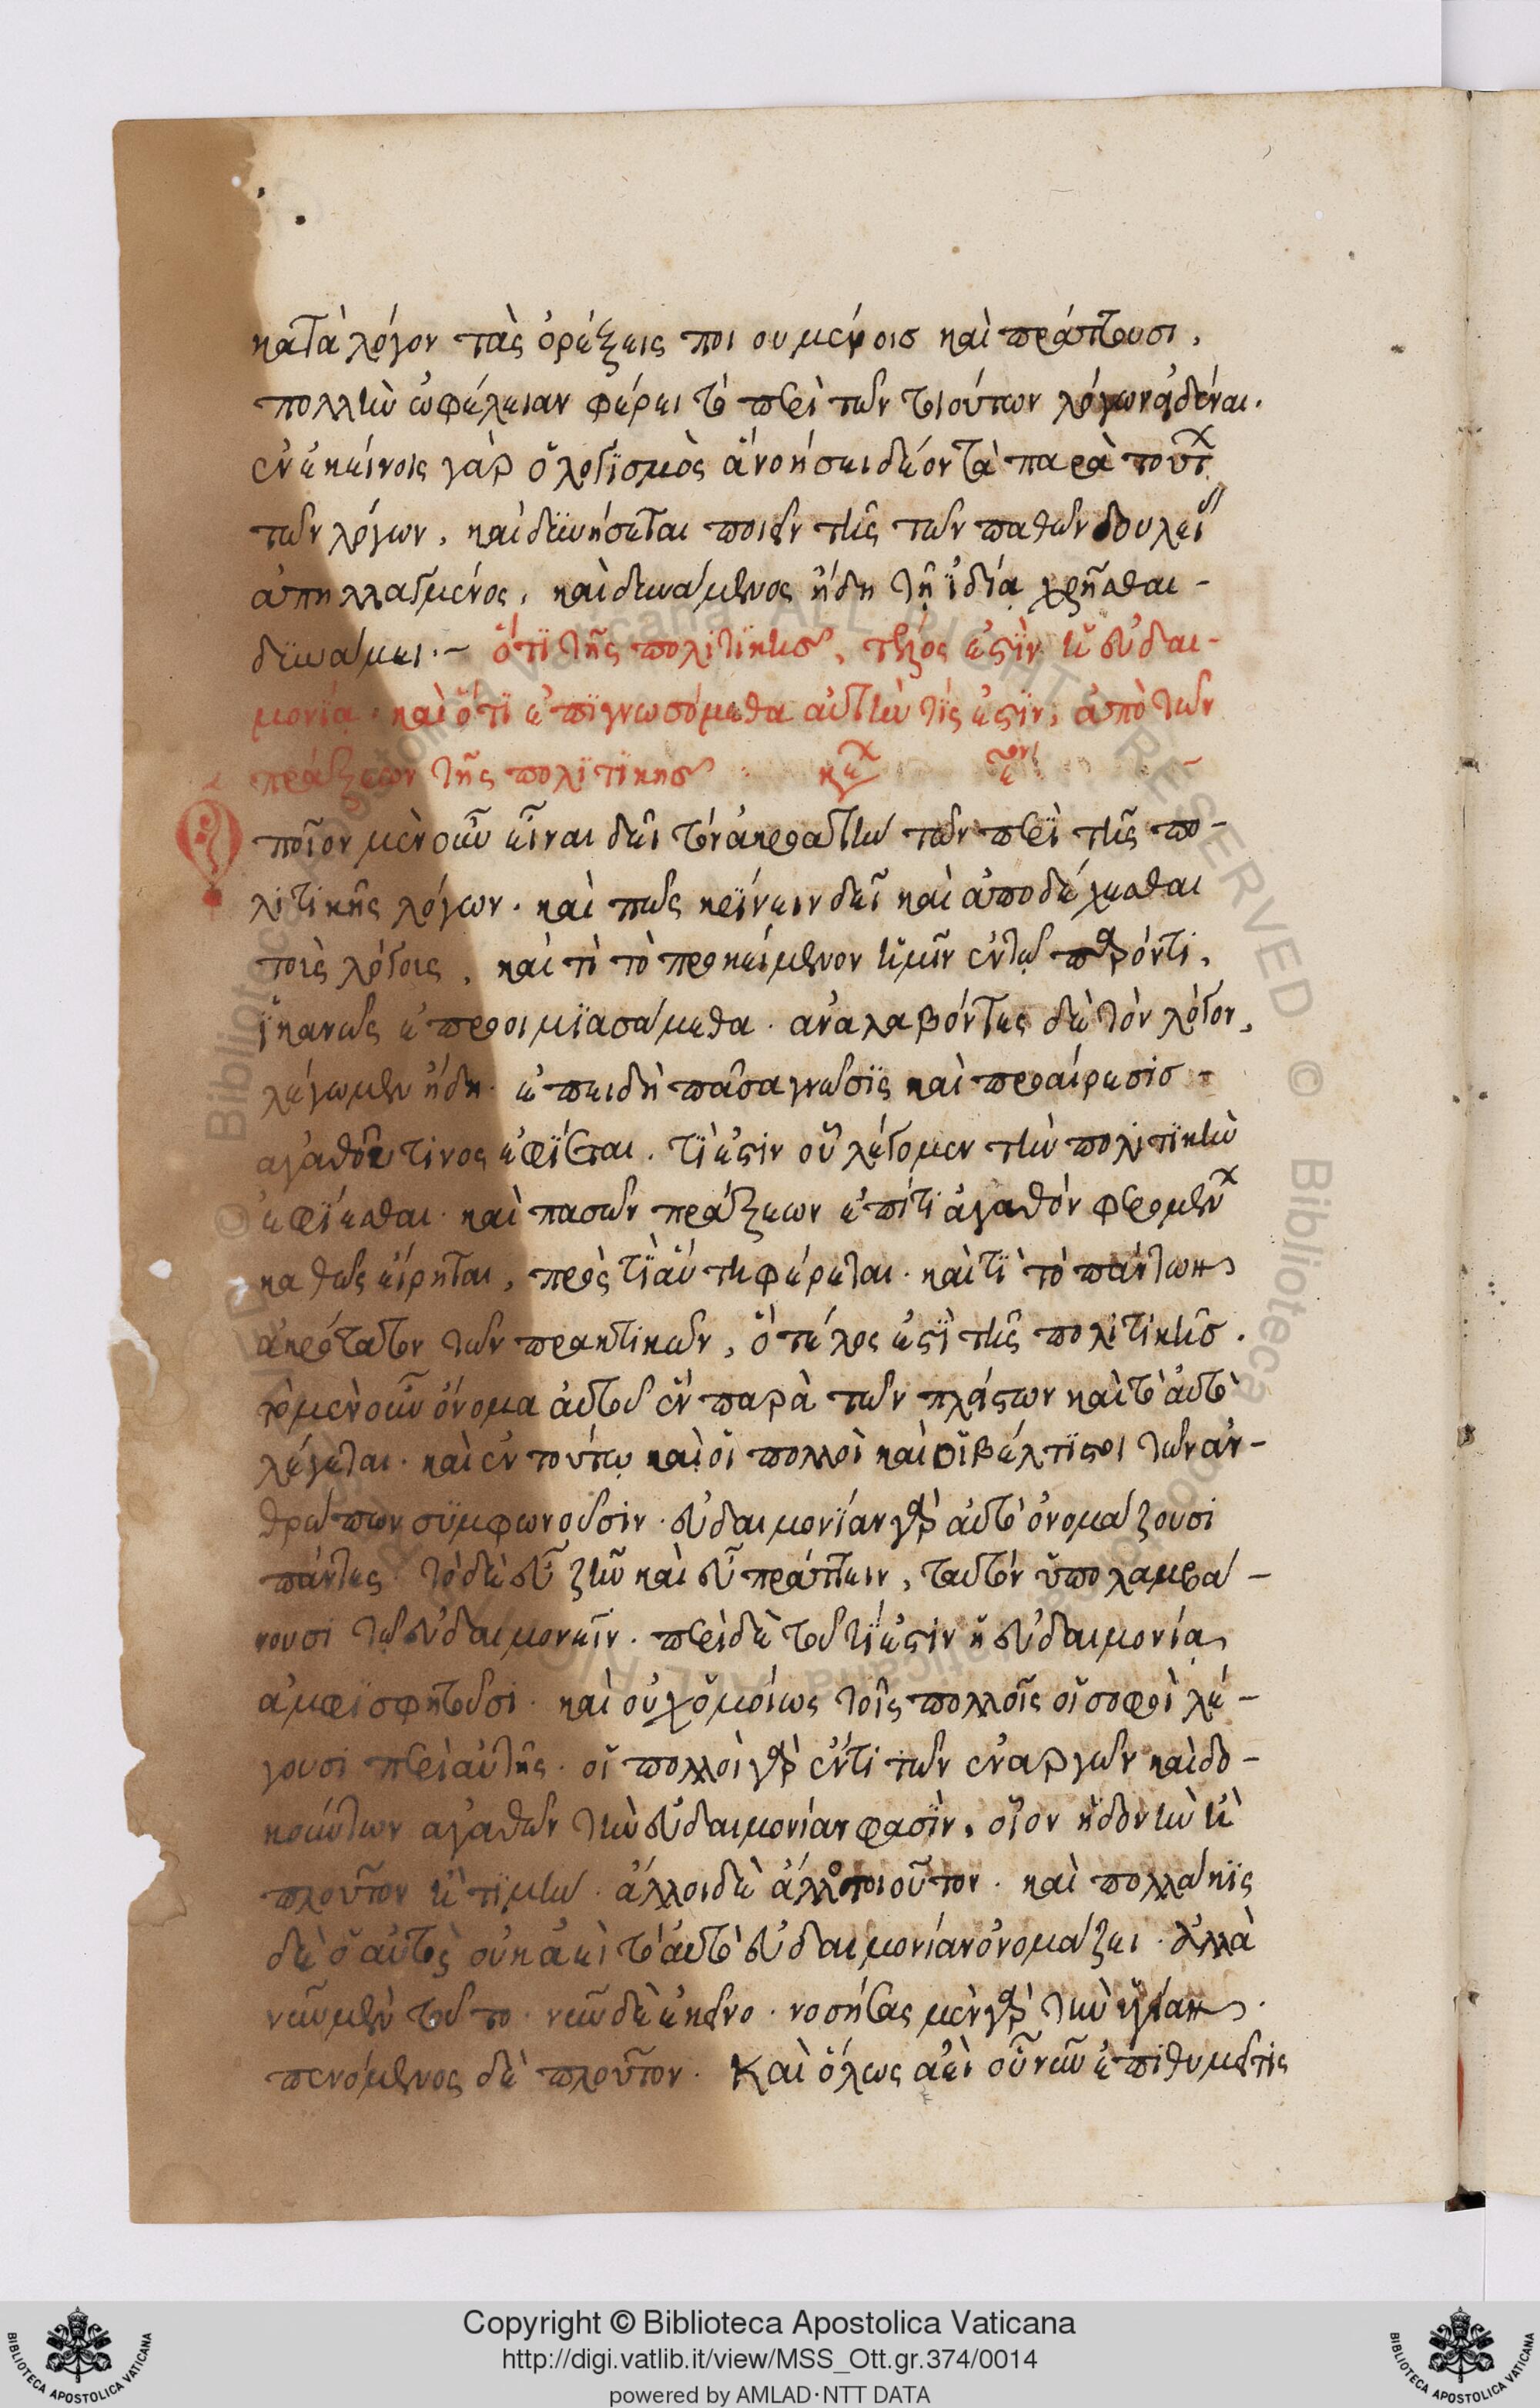 κατὰ λόγον τὰς ὀρέξεις ποιουμένοις καὶ πράττουσι,
πολλὴν ὠφέλειαν φέρει τὸ περὶ τῶν τοιούτων λόγων εἰδέναι.
ἐν ἐκείνοις γὰρ ὁ λογισμὸς ἀνοήσει δέοντα παρὰ τούτ
τῶν λόγων, καὶ δυνήσεται ποιεῖν τῆς τῶν παθῶν δουλεί
ἀπηλλαγμένος, καὶ δυνάμενος ἤδη τῇ ἰδίᾳ χρῆσθαι -
δυνάμει .- ὅτι τῆς πολιτικῆς, τέλος ἐστὶν ἡ εὐδαι-
μονία. καὶ ὅτι ἐπιγνωσόμεθα αὐτὴν τίς ἐστιν, ἀπὸ τῶν
πράξεων τῆς πολιτικῆς
ποῖον μὲν οὖν εἶναι δεῖ τὸν ἀκροατὴν τῶν περὶ τῆς πο-
λιτικῆς λόγων. καὶ πῶς κρίνειν δεῖ καὶ ἀποδέχεσθαι
τοὺς λόγοις, καὶ τί τὸ προκείμενον ἡμῖν ἐν τῷ παρόντι,
ἱκανῶς ἐπροοιμιασάμεθα. ἀναλαβόντες δὲ τὸν λόγον,
λέγωμεν ἤδη. ἐπειδὴ πᾶσα γνῶσις καὶ προαίρεσις -
ἀγαθοῦ τινος ἐφίεται. τί ἐστιν οὗ λέγομεν τὴν πολιτικὴν
ἐφίεσθαι. καὶ πασῶν πράξεων ἐπί τι ἀγαθὸν φερομένων
καθὼς εἴρηται, πρὸς τί αὕτη φέρεται. καὶ τί τὸ πάντων
ἀκρότατον τῶν πρακτικῶν, ὃ τέλος ἐστὶ τῆς πολιτικῆς.
τὸ μὲν οὖν ὄνομα αὐτοῦ ἓν παρὰ τῶν πλείστων καὶ τὸ αὐτὸ
λέγεται. καὶ ἐν τούτῳ καὶ οἱ πολλοὶ καὶ οἱ βέλτιστοι τῶν ἀν-
θρώπων συμφωνοῦσιν. εὐδαιμονίαν γὰρ αὐτὸ ὀνομάζουσι
πάντες. τὸ δὲ εὖ ζῆν καὶ εὖ πράττειν, ταὐτὸν ὑπολαμβά-
νουσι τῷ εὐδαιμονεῖν. περὶ δὲ τοῦ τί ἐστιν ἡ εὐδαιμονία,
ἀμφισβητοῦσι. καὶ οὐχ ὁμοίως τοῖς πολλοῖς οἱ σοφοὶ λέ-
γουσι περὶ αὐτῆς. οἱ πολλοὶ γὰρ ἕν τι τῶν ἐναργῶν καὶ δο-
κούντων ἀγαθῶν τὴν εὐδαιμονίαν φασίν, οἷον ἡδονὴν ἢ
πλοῦτον ἢ τιμήν. ἄλλοι δὲ ἄλλο τοιοῦτον. καὶ πολλάκις
δὲ ὁ αὐτὸς οὐκ ἀεὶ τὸ αὐτὸ εὐδαιμονίαν ὀνομάζει. ἀλλὰ
νῦν μὲν τοῦτο. νῦν δὲ ἐκεῖνο. νοσήσας μὲν γὰρ τὴν ὑγίαν.
πενόμενος δὲ πλοῦτον. Καὶ ὅλως ἀεὶ οὗ νῦν ἐπιθυμεῖ τις
Copyright © Biblioteca Apostolica Vaticana
http://digi.vatlib.it/view/MSS_Ott.gr.374/0014
powered by AMLAD·NTT DATA